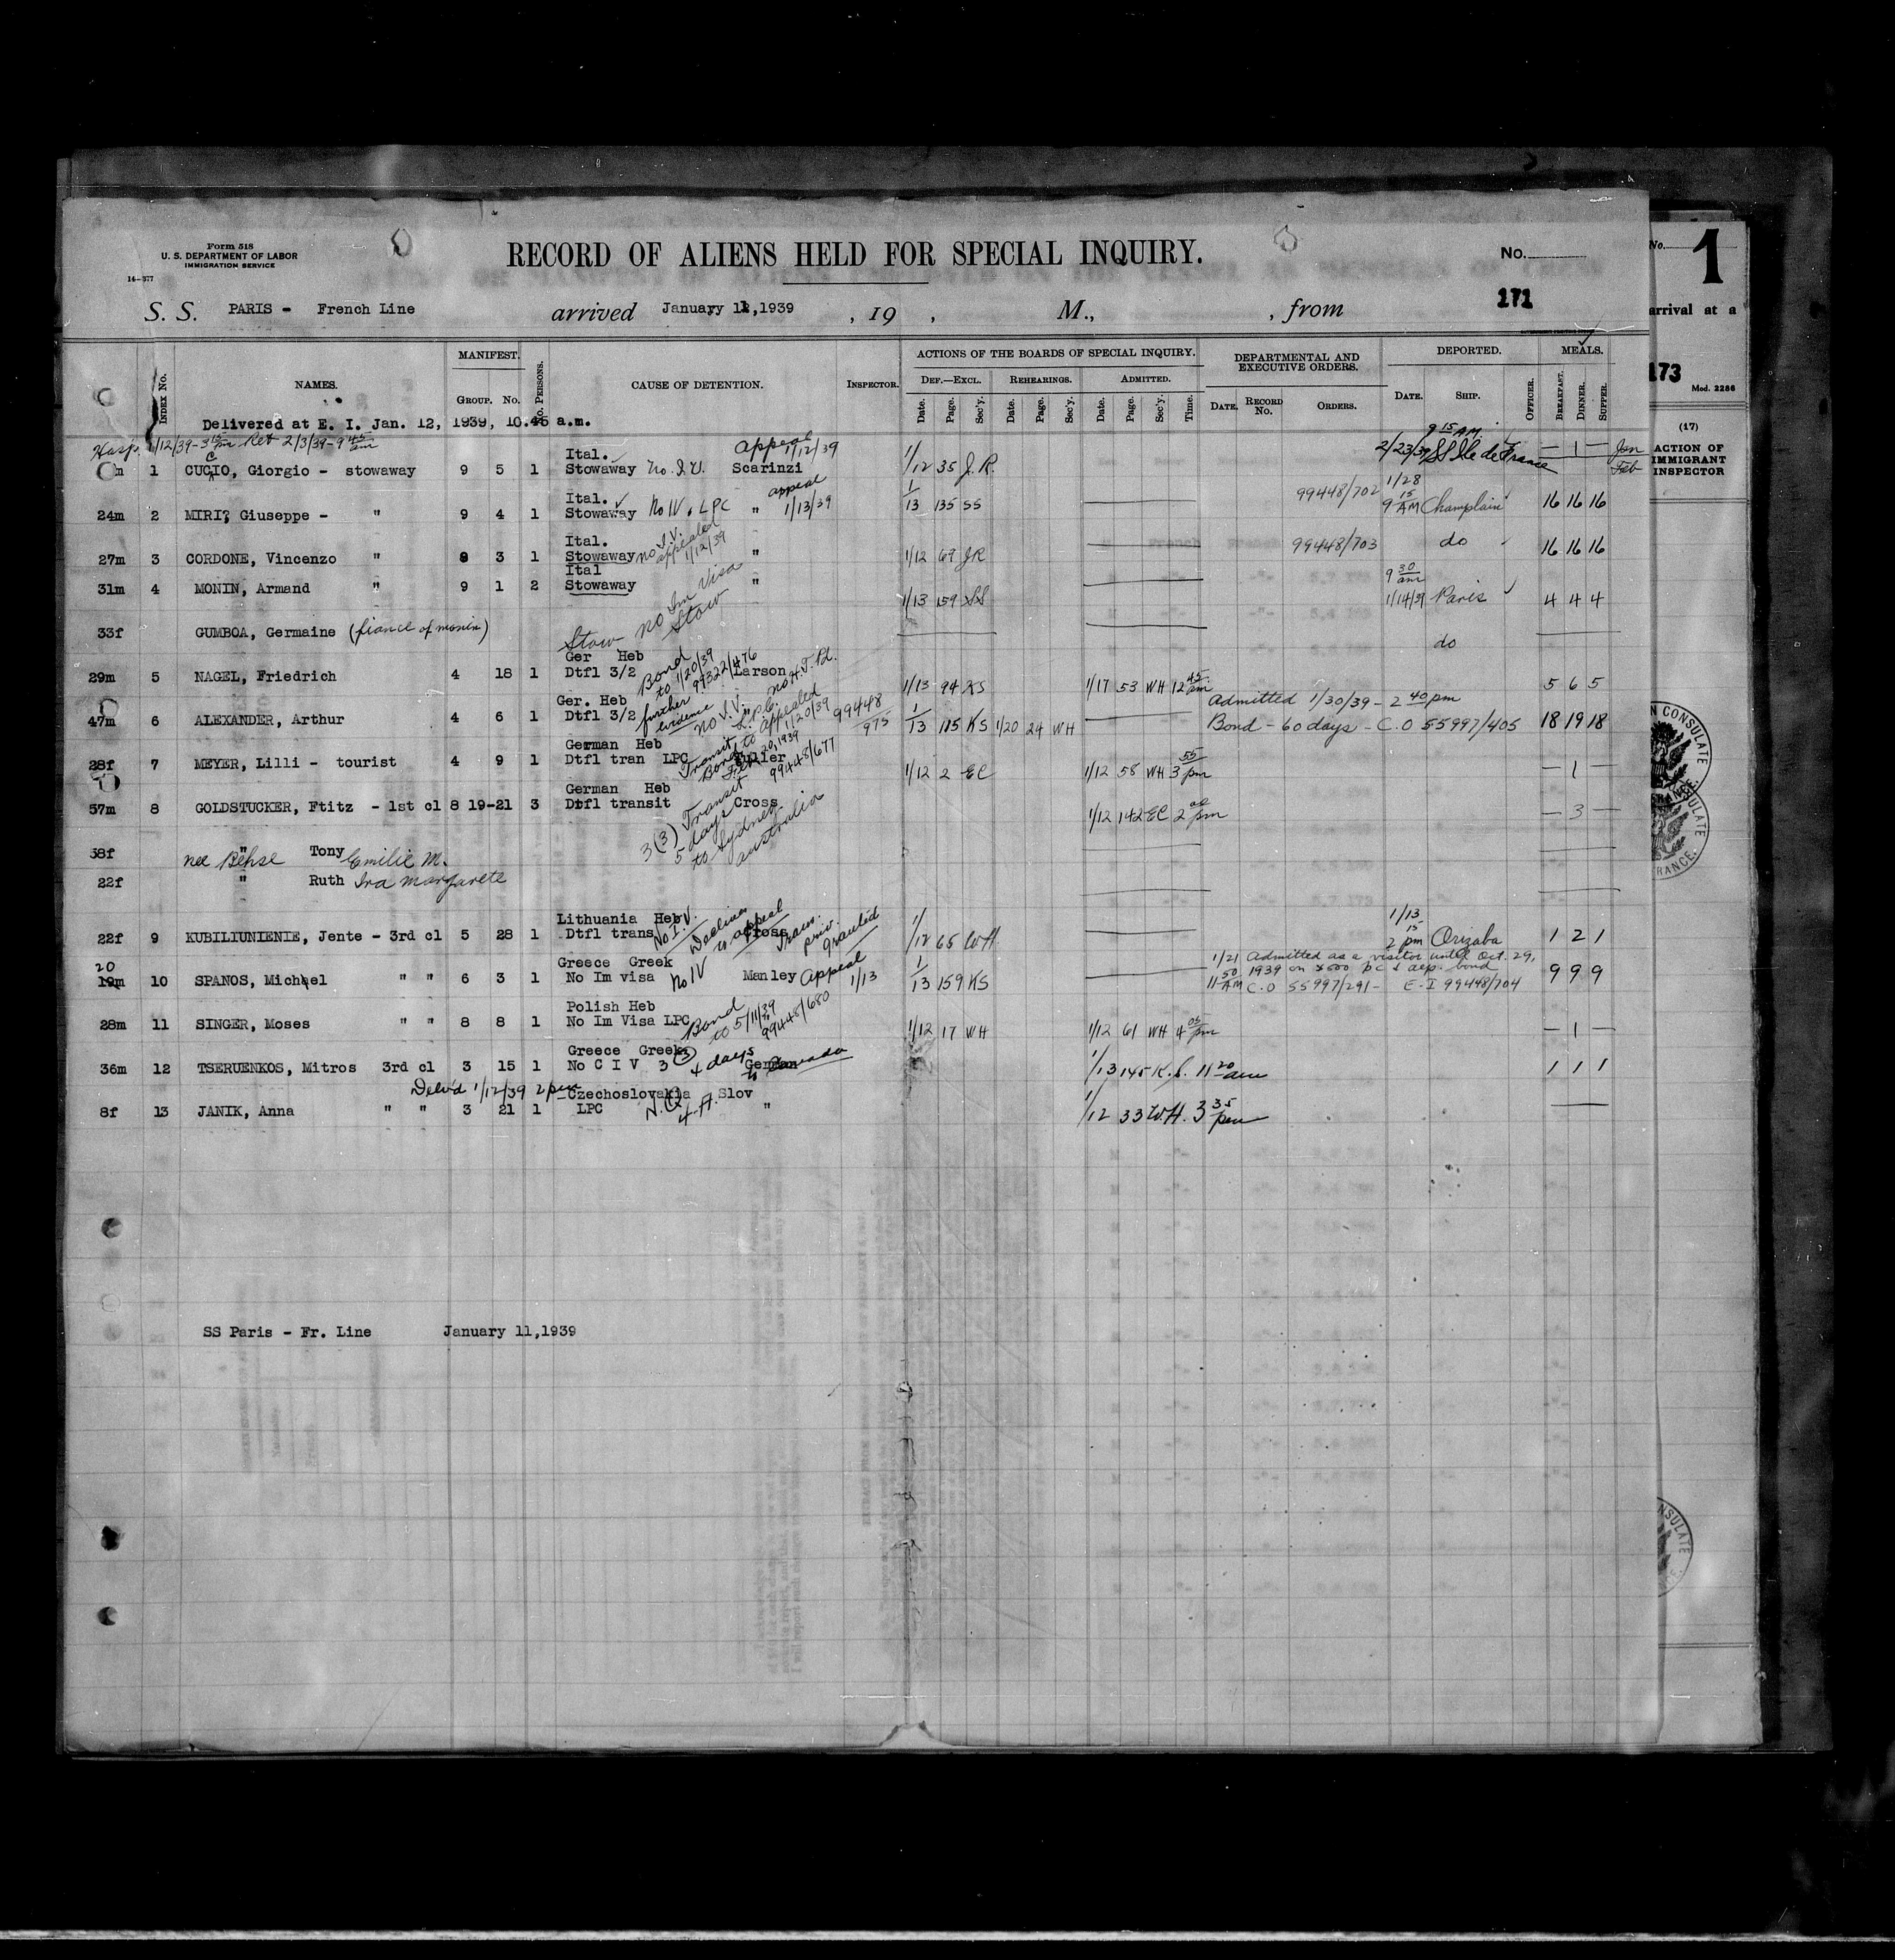 Form 518
U. S. DEPARTMENT OF LABOR
IMMIGRATION SERVICE
14—577
RECORD OF ALIENS HELD FOR SPECIAL INQUIRY.
No.
171
S. S. PARIS - French Line arrived January 11,1939 , 19 , M., , from
INDEX No. NAMES. MANIFEST. GROUP. No. No. PERSONS. CAUSE OF DETENTION. INSPECTOR. ACTIONS OF THE BOARDS OF SPECIAL INQUIRY. DEPARTMENTAL AND EXECUTIVE ORDERS. DEPORTED. MEALS.
DEF.—EXCL. REHEARINGS. ADMITTED.
Date. Page. Sec'y. Date. Page. Sec'y. Date. Page. Sec'y. Time. DATE. RECORD No. ORDERS. DATE. SHIP. OFFICER. BREAKFAST. DINNER. SUPPER.
Delivered at E. I. Jan. 12, 1939, 10.45 a.m.
Hosp. 1/12/39 - 3 15 pm Ret 2/3/39 - 9 45 am
Ital. Appeal 1/12/39 9 15 AM
m 1 CUCIO, Giorgio - stowaway 9 5 1 Stowaway No. I.V. Scarinzi 1/12 35 J.R. 2/23/39 SS Ile de France — 1 — Jan Feb
Ital. appeal 1/28
24m 2 MIRI, Giuseppe - " 9 4 1 Stowaway No IV. LPC " 1/13/39 1/13 135 SS 99448/702 9 15 AM Champlain 16 16 16
Ital.
27m 3 CORDONE, Vincenzo " 9 3 1 Stowaway no I.V. appealed 1/12/39 " 1/12 69 JR 99448/703 do 16 16 16
Ital
31m 4 MONIN, Armand " 9 1 2 Stowaway no Im Visa Stow " 1/13 159 SS 9 30 am 1/14/39 Paris 4 4 4
33f GUMBOA, Germaine (fiance of monin) Stow do
Ger Heb
29m 5 NAGEL, Friedrich 4 18 1 Dtfl 3/2 Bond to 1/20/39 99322/476 Larson 1/13 94 KS 1/17 53 WH 12 45 am 5 6 5
Ger. Heb
47m 6 ALEXANDER, Arthur 4 6 1 Dtfl 3/2 further evidence no I.V. L.P.C. no H.T. Pd. Appealed 1/20/39 99448/975 1/13 115 KS 1/20 24 WH Admitted 1/30/39 - 2 40 pm
Bond - 60 days - C.O 55997/405 18 19 18
German Heb
28f 7 MEYER, Lilli - tourist 4 9 1 Dtfl tran LPC Transit Bond to 20, 1939 99448/677 Fuller 1/12 2 EC 1/12 58 WH 3 55 pm — 1 —
German Heb
57m 8 GOLDSTUCKER, Ftitz - 1st cl 8 19-21 3 Dtfl transit Cross 1/12 142 EC 2 00 pm — 3 —
3(3) Transit 5 days to Sydney Australia
58f nee Behse " Tony Emilie M.
22f " Ruth Ira Margarete
Lithuania Heb 1/13
22f 9 KUBILIUNIENIE, Jente - 3rd cl 5 28 1 Dtfl trans No I.V. Declines to appeal Cross Trans. priv. granted 1/12 65 WH 2 15 pm Orizaba 1 2 1
Greece Greek
20
19m 10 SPANOS, Michael " " 6 3 1 No Im visa No IV Manley Appeal 1/13 1/13 159 KS 1/21 Admitted as a visitor until Oct. 29,
11 50 AM 1939 on $500 p c & dep. bond 9 9 9
C.O 55997/291 - E-I 99448/704
Polish Heb
28m 11 SINGER, Moses " " 8 8 1 No Im Visa LPC Bond to 5/11/39 99448/680 1/12 17 WH 1/12 61 WH 4 05 pm — 1 —
Greece Greek
36m 12 TSERUENKOS, Mitros 3rd cl 3 15 1 No C I V 3(3) 4 days to Canada German 1/13 145 K.S. 11 20 am 1 1 1
Delv'd 1/12/39 2 pm Czechoslovakia Slov
8f 13 JANIK, Anna " " 3 21 1 LPC 4-A. " 1/12 33 W.H. 3 35 pm
SS Paris - Fr. Line January 11,1939
No. 1
arrival at a
173
Mod. 2286
(17)
ACTION OF
IMMIGRANT
INSPECTOR
N CONSULATE
FRANCE.